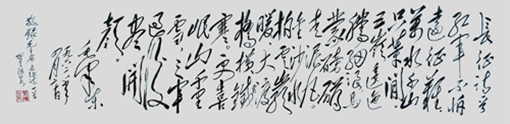 紅軍不怕
遠征難
萬水千山
只等閒
五嶺逶迤
騰細浪烏
蒙磅礴
走泥丸
金沙水拍
雲崖
暖大渡
橋橫鐵
索寒更喜
岷山千里
雪三軍
過後
盡開
顏
毛澤東
一九六二年